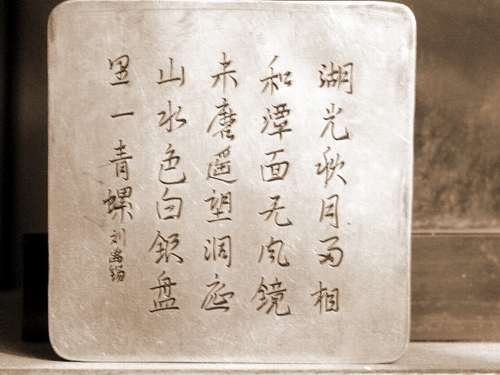 湖光秋月两相
和潭面无风镜
未磨遥望洞庭
山水色白银盘
里一青螺
刘禹锡